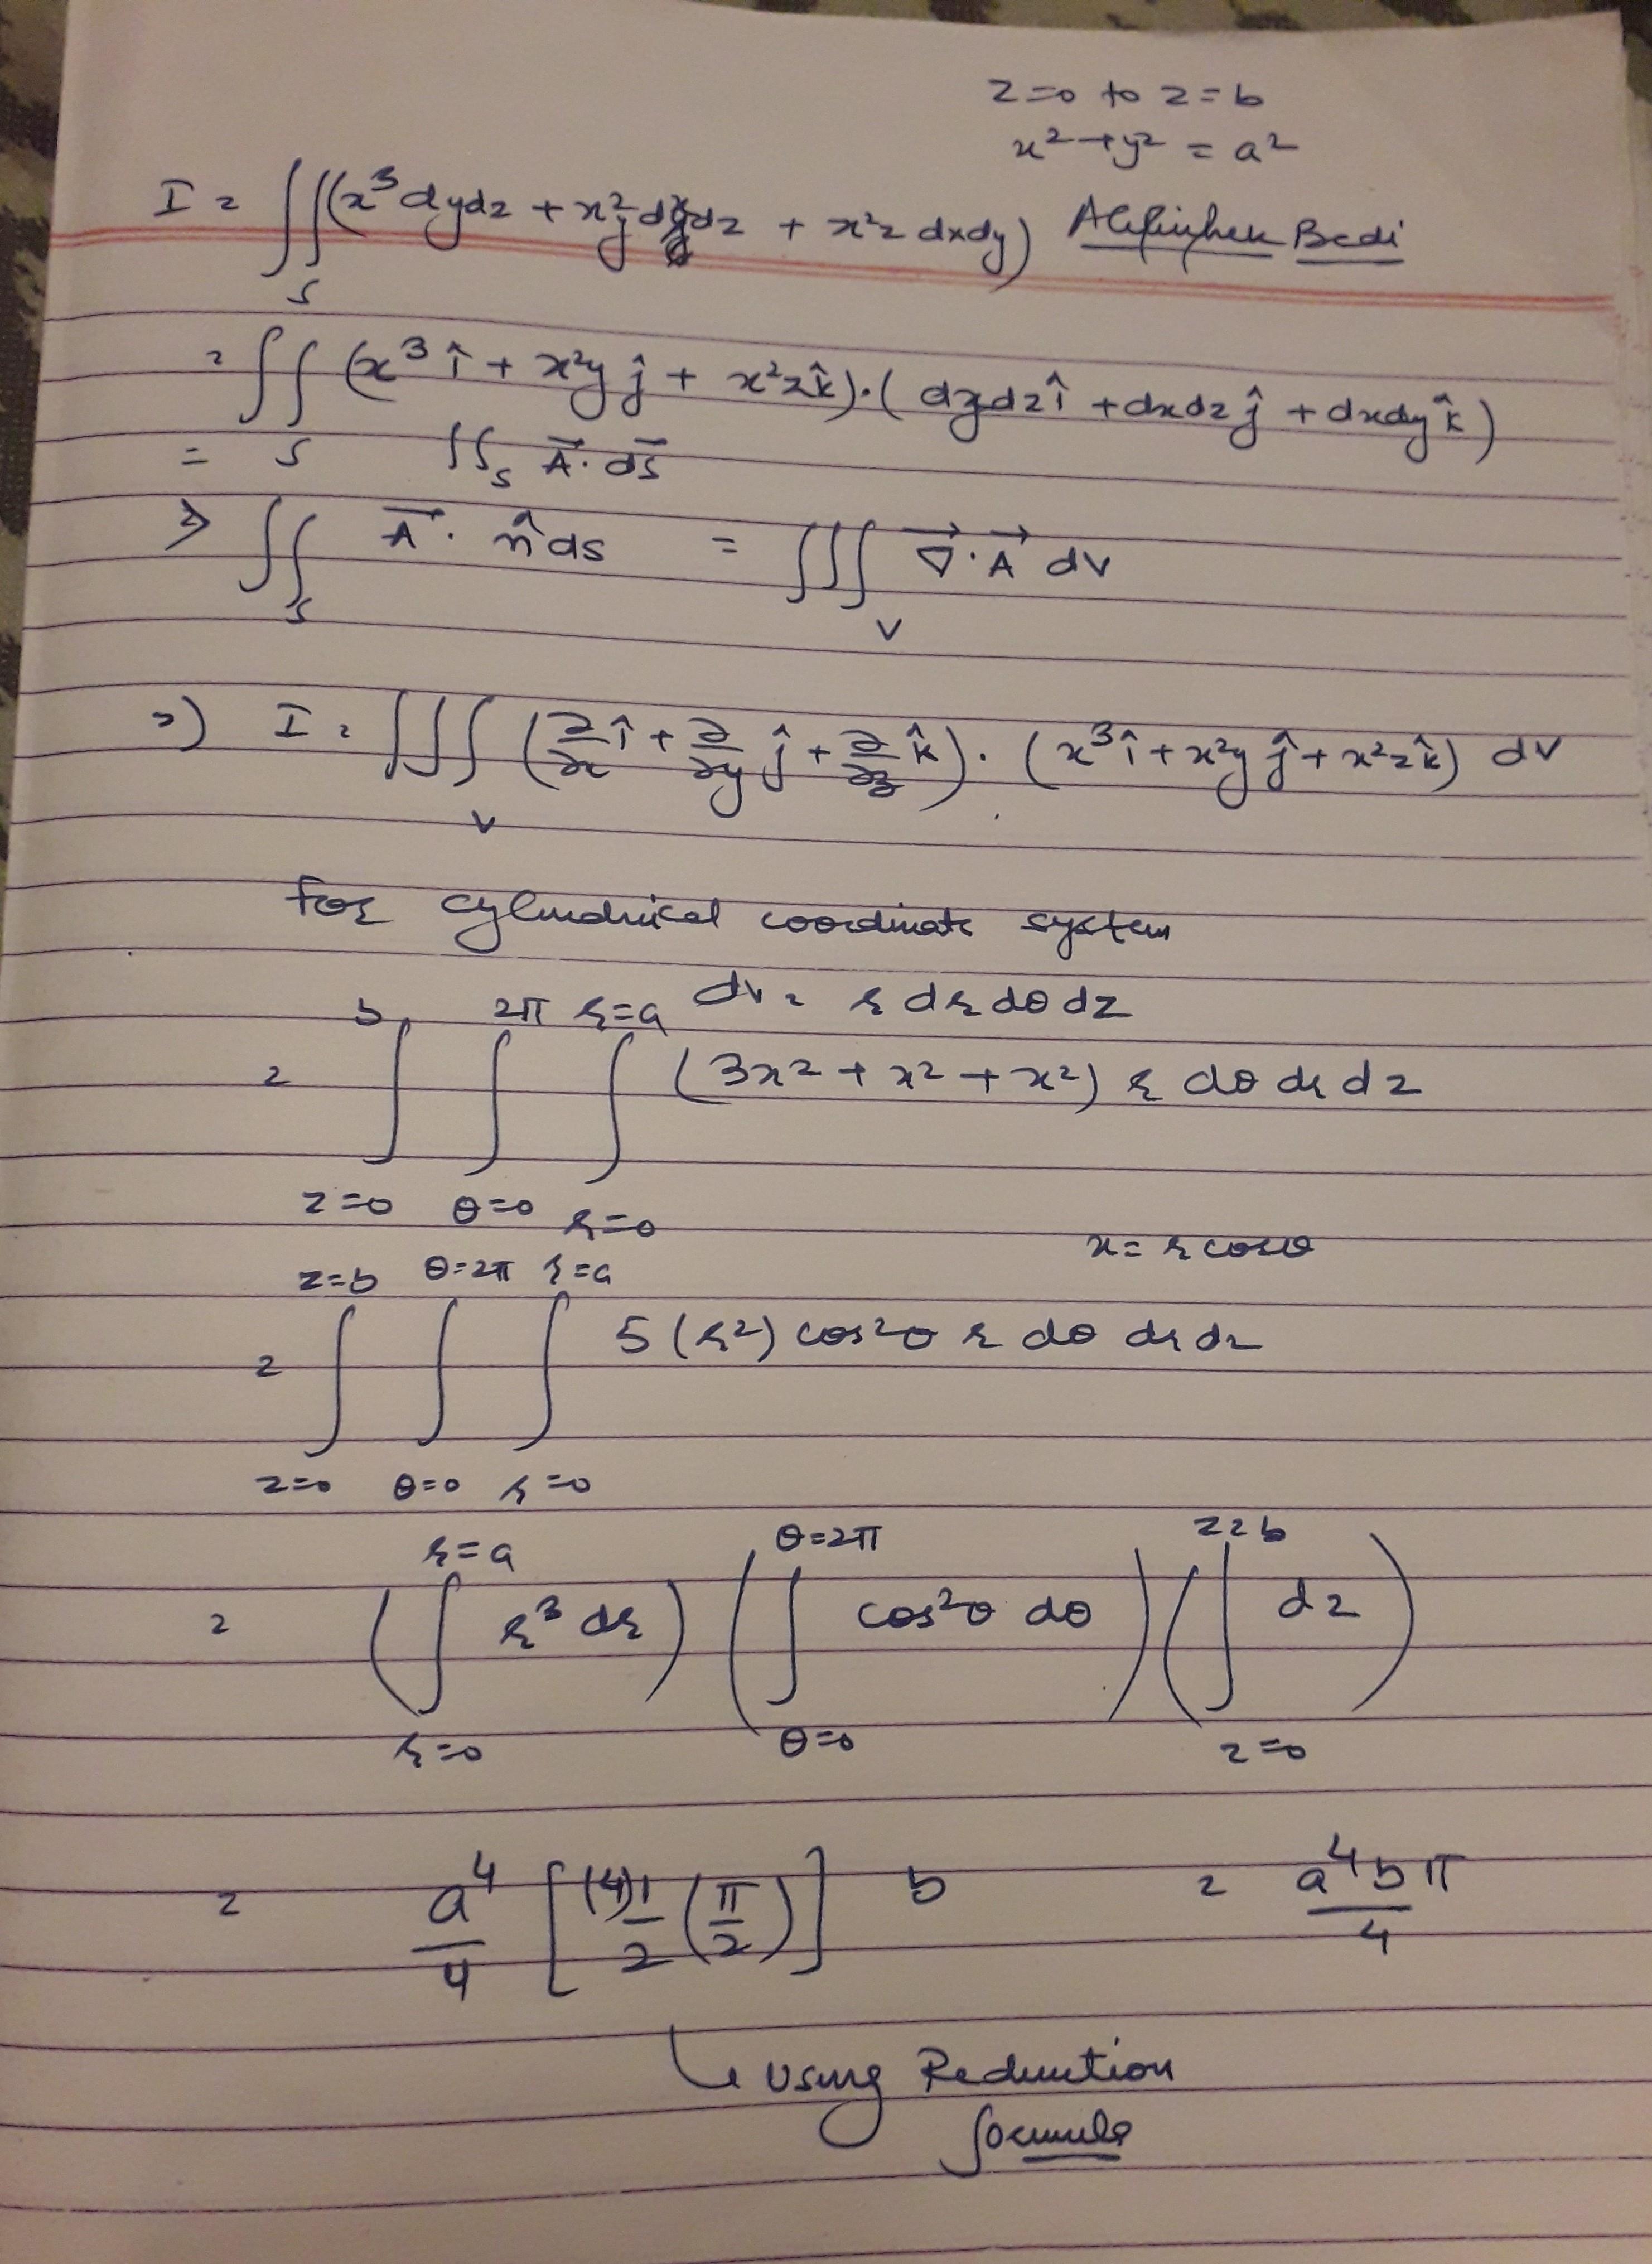 z=0 to z=b
x²+y² = a²
I = ∫∫_S (x³ dydz + x²y dxdz + x²z dxdy) Abhishek Bedi
= ∫∫_S (x³ î + x²y ĵ + x²z k̂)·(dydz î + dxdz ĵ + dxdy k̂)
= ∫∫_S A⃗·ds⃗
⇒ ∫∫_S A⃗· n̂ ds = ∫∫∫_V ∇⃗·A⃗ dv
⇒ I = ∫∫∫_V (∂/∂x î + ∂/∂y ĵ + ∂/∂z k̂)·(x³ î + x²y ĵ + x²z k̂) dv
For cylindrical coordinate system
dv = r dr dθ dz
= ∫_{z=0}^{b} ∫_{θ=0}^{2π} ∫_{r=0}^{r=a} (3x² + x² + x²) r dθ dr dz
x = r cosθ
= ∫_{z=0}^{z=b} ∫_{θ=0}^{θ=2π} ∫_{r=0}^{r=a} 5(r²) cos²θ r dθ dr dz
= (∫_{r=0}^{r=a} r³ dr) (∫_{θ=0}^{θ=2π} cos²θ dθ) (∫_{z=0}^{z=b} dz)
= a⁴/4 [(4) 1/2 (π/2)] b = a⁴bπ/4
↳ using Reduction
formula